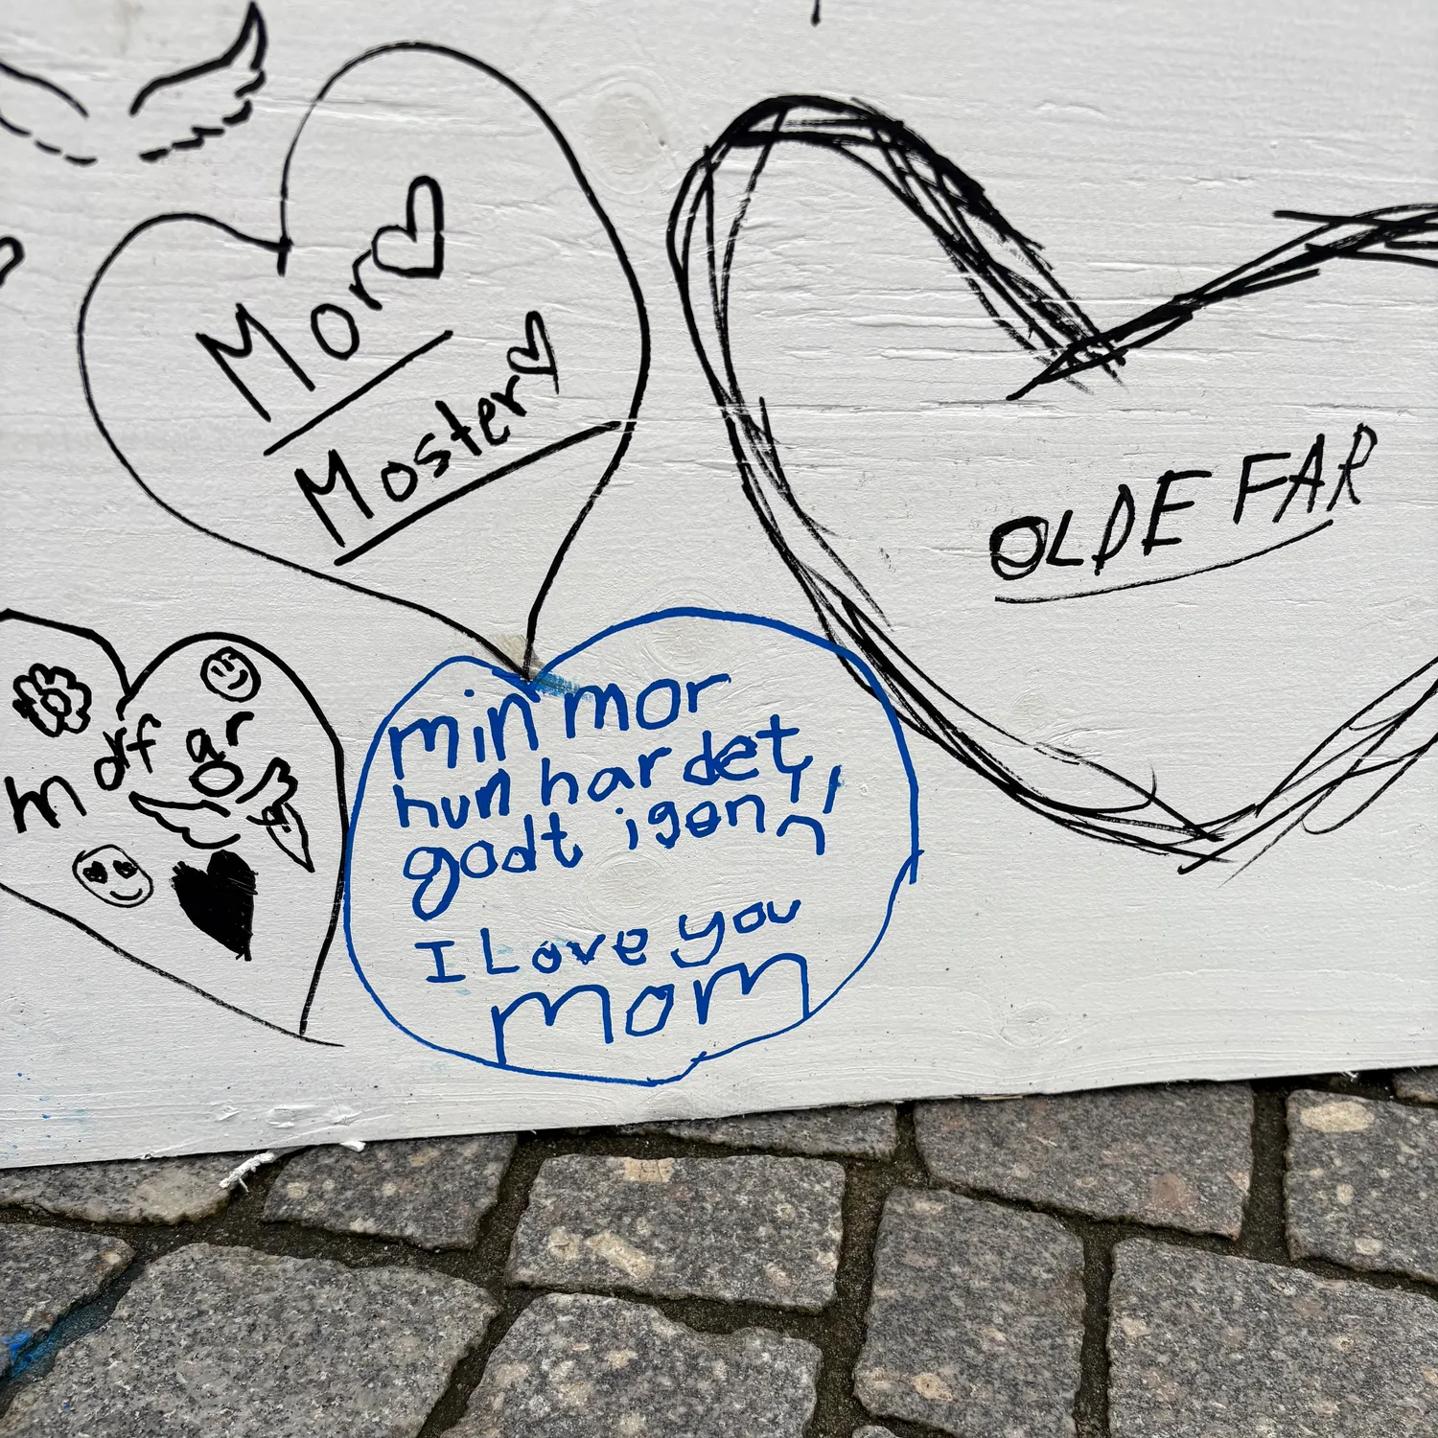 Mor
Moster
OLDE FAR
morfar
min mor
hun har det
godt igen
I Love you
mom